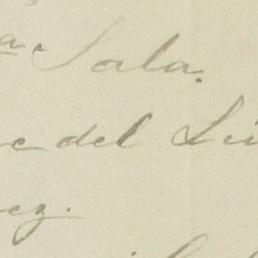 a Sala.
e del Lu
ez.